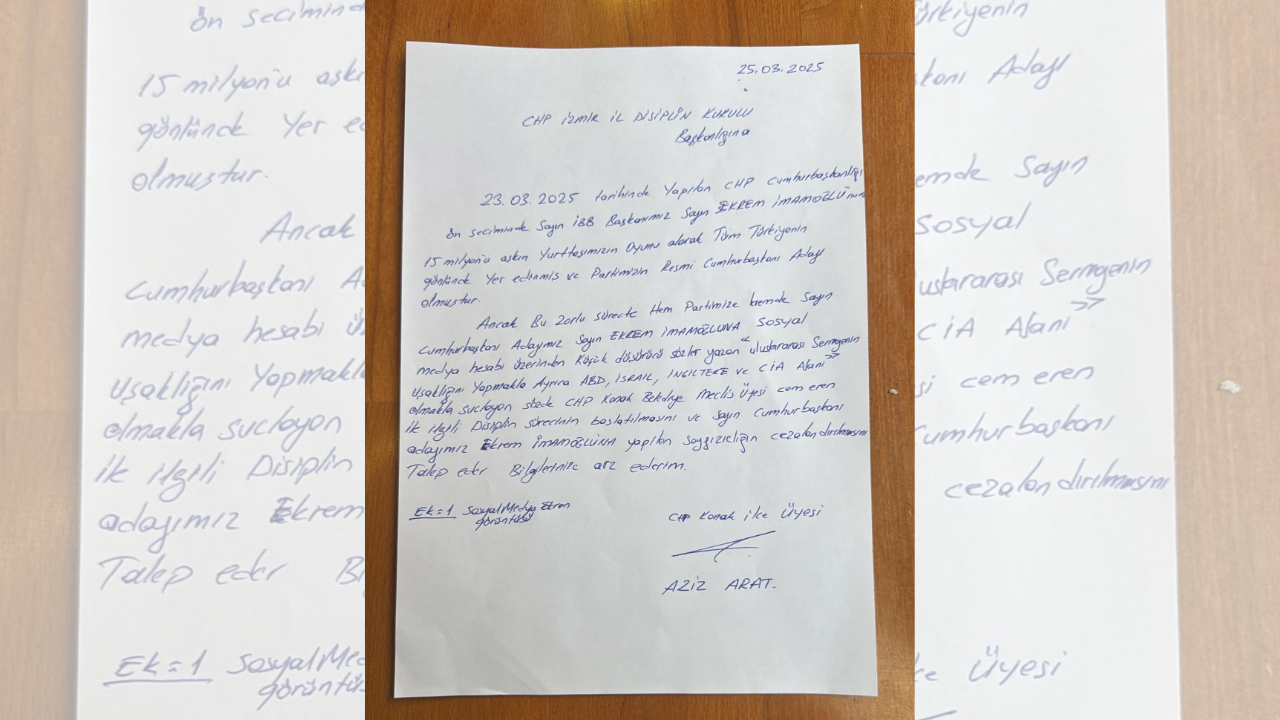 25.03.2025
CHP İZMİR İL DİSİPLİN KURULU
Başkanlığına
23.03.2025 tarihinde Yapılan CHP Cumhurbaşkanlığı
ön seçiminde Sayın İBB Başkanımız Sayın EKREM İMAMOĞLU'nun
15 milyon'u aşkın Yurttaşımızın Oyunu alarak Tüm Türkiyenin
gönlünde Yer edinmiş ve Partimizin Resmi Cumhurbaşkanı Adayı
olmuştur.
Ancak Bu Zorlu süreçte Hem Partimize hemde Sayın
Cumhurbaşkanı Adayımız Sayın EKREM İMAMOĞLUNA Sosyal
medya hesabı üzerinden Küçük düşürücü sözler yazan "uluslararası Sermayenin
Uşaklığını Yapmakla Ayrıca ABD, İSRAİL, İNGİLTERE ve CİA Ajanı"
olmakla suçlayan sözde CHP Konak Belediye Meclis Üyesi cem eren
ik ilgili Disiplin sürecinin başlatılmasını ve Sayın Cumhurbaşkanı
adayımız Ekrem İMAMOĞLUNA yapılan saygısızlığın cezalandırılmasını
Talep eder Bilgilerinize arz ederim.
Ek=1 Sosyal Medya Ekran
görüntüsü
CHP Konak ilçe Üyesi
AZİZ ARAT.